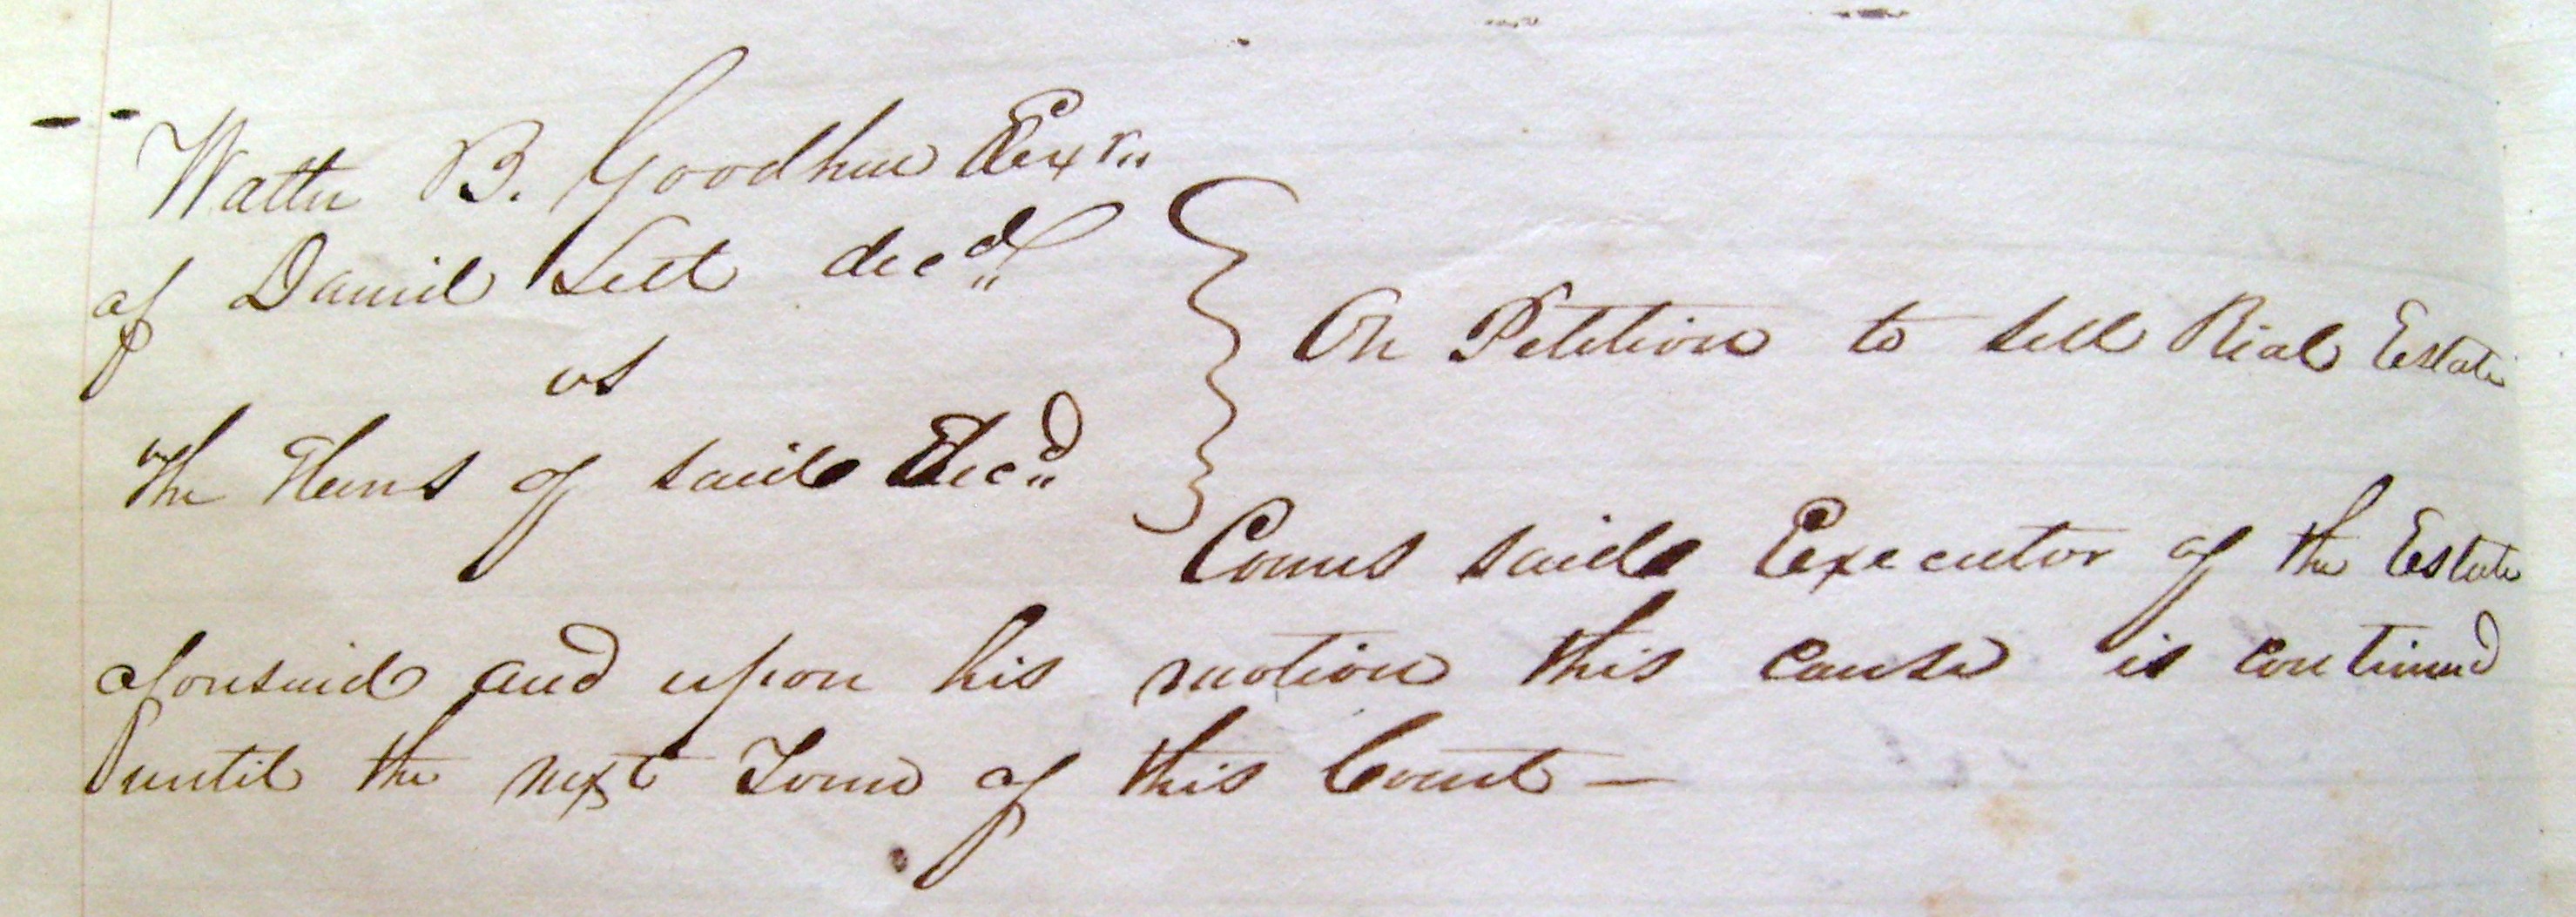 Walter B. Goodhue Exr
of Daniel Lett decd
vs
The Heirs of said Decd
On Petition to sell Real Estate
Comes said Executor of the Estate
aforesaid and upon his motion this cause is continued
until the next Term of this Court —